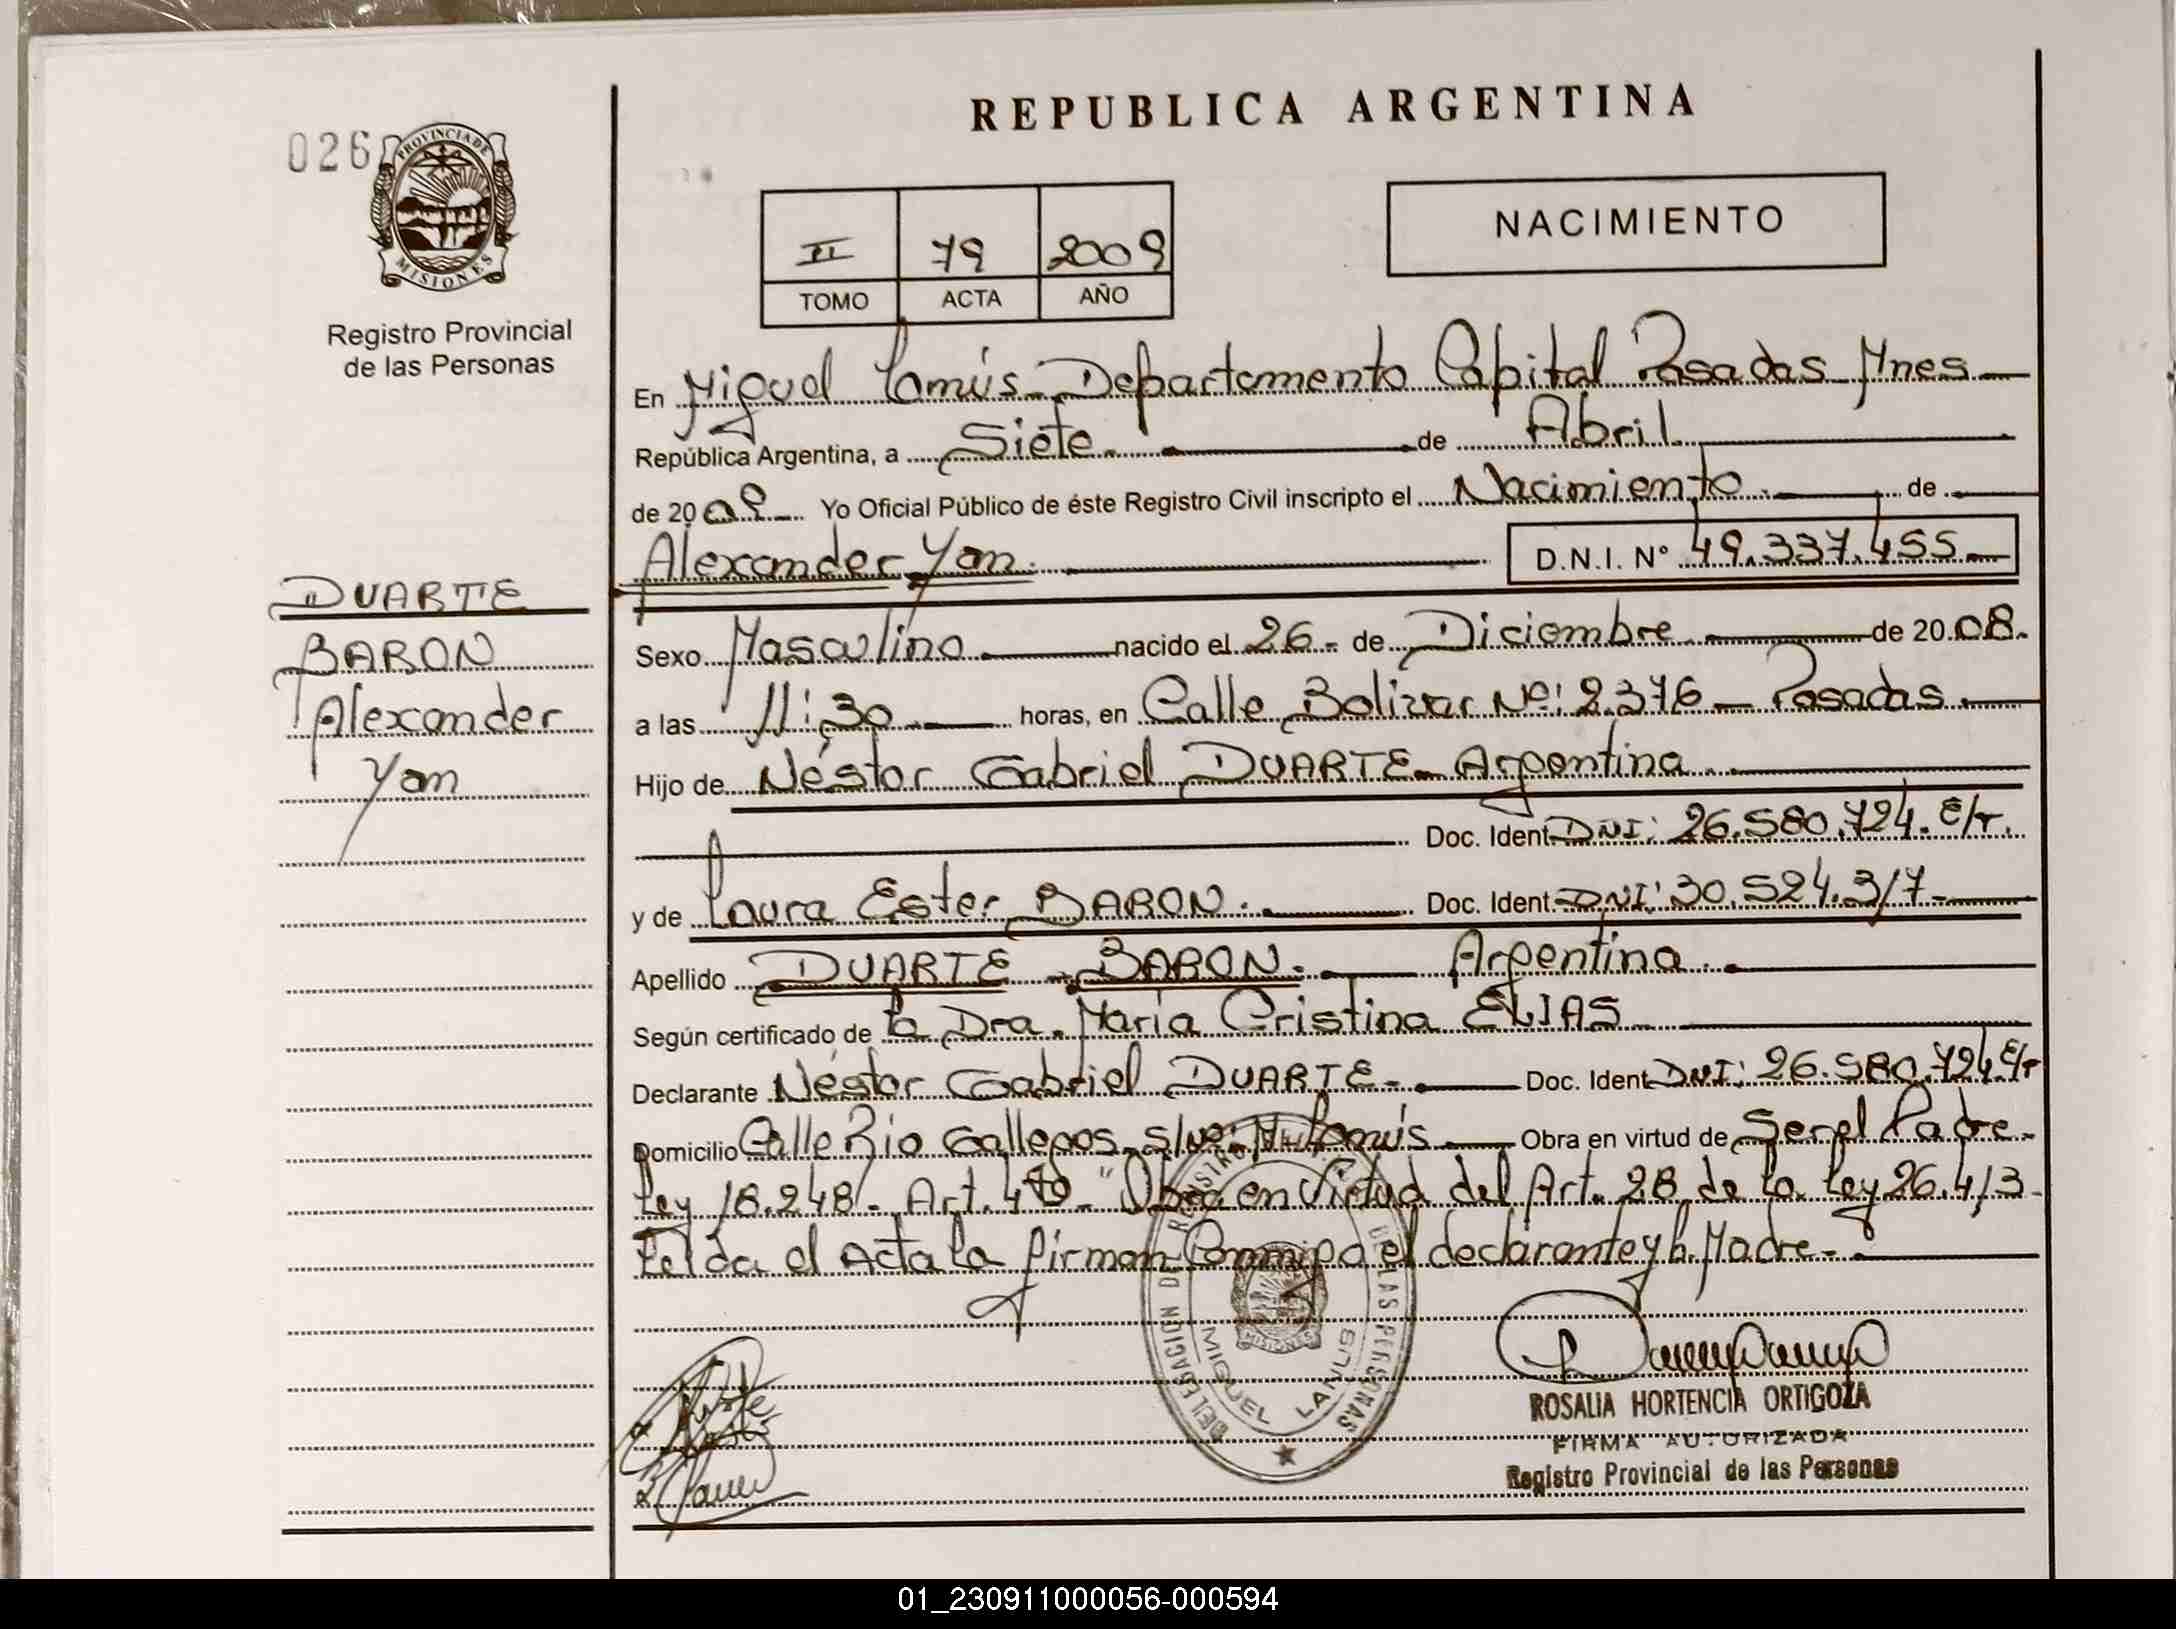 REPUBLICA ARGENTINA
026
PROVINCIA DE MISIONES
Registro Provincial
de las Personas
II 79 2009
TOMO ACTA AÑO
NACIMIENTO
En Miguel Lanús - Departamento Capital Posadas Mnes
República Argentina, a Siete de Abril
de 2009 Yo Oficial Público de éste Registro Civil inscripto el Nacimiento de
Alexander Yan. D.N.I. Nº 49.337.455
DUARTE
BARON
Alexander
Yan
Sexo Masculino nacido el 26 - de Diciembre de 2008.
a las 11:30 horas, en Calle Bolivar Nº: 2.376 - Posadas
Hijo de Néstor Gabriel DUARTE - Argentina
Doc. Ident. DNI: 26.580.724. E/T.
y de Laura Ester BARON. Doc. Ident. DNI: 30.524.317
Apellido DUARTE - BARON. Argentina
Según certificado de la Dra. María Cristina ELIAS
Declarante Néstor Gabriel DUARTE - Doc. Ident. DNI: 26.580.724 E/T
Domicilio Calle Rio Gallegos s/Nº: M. Lanús Obra en virtud de Ser el Padre -
Ley 18.248 - Art. 4to - "Obra en Virtud del Art. 28 de la Ley 26.413
Leída el Acta la firman Conmigo el declarante y la Madre -
DELEGACION DEL REGISTRO PROVINCIAL DE LAS PERSONAS
MISIONES
MIGUEL LANUS
ROSALIA HORTENCIA ORTIGOZA
FIRMA AUTORIZADA
Registro Provincial de las Personas
01_230911000056-000594